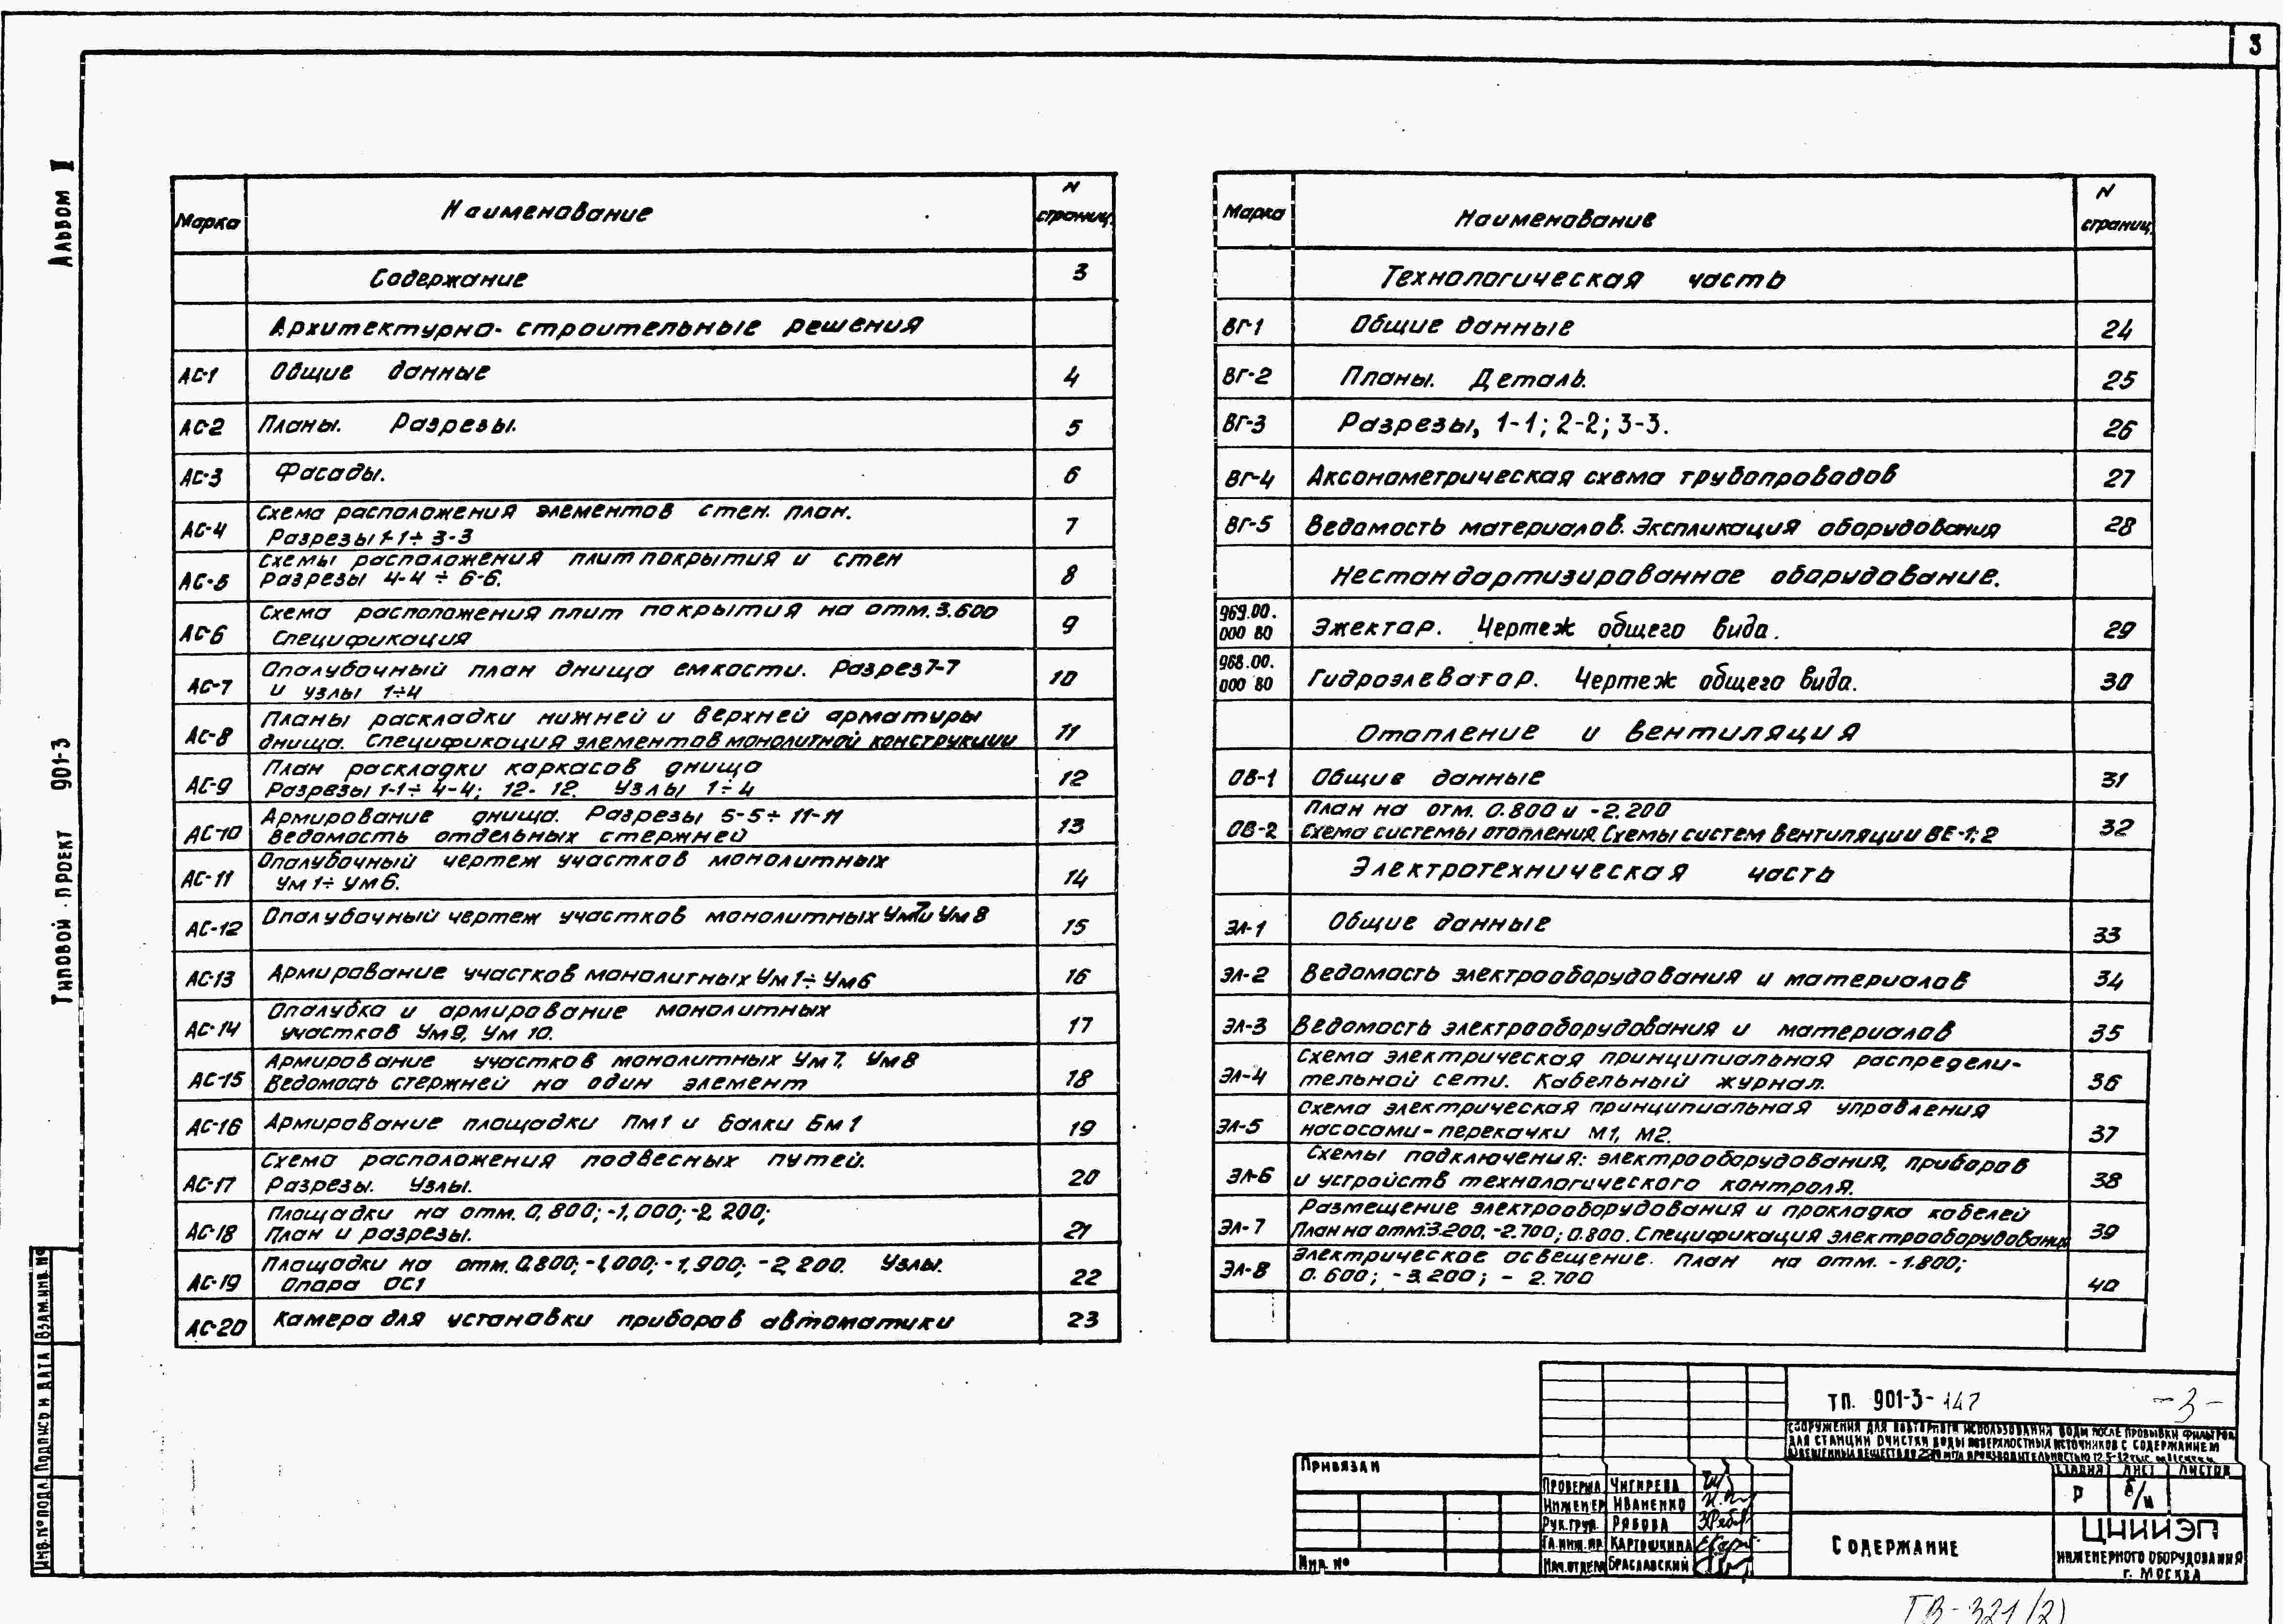 3
Альбом II
Типовой проект 901-3
Марка Наименование N страниц.
Содержание 3
Архитектурно-строительные решения
АС-1 Общие данные 4
АС-2 Планы. Разрезы. 5
АС-3 Фасады. 6
АС-4 Схема расположения элементов стен. план. 7
Разрезы 1-1÷3-3
АС-5 Схемы расположения плит покрытия и стен 8
Разрезы 4-4÷6-6.
АС-6 Схема расположения плит покрытия на отм. 3.600 9
Спецификация
АС-7 Опалубочный план днища емкости. Разрез 7-7 10
и узлы 1÷4
АС-8 Планы раскладки нижней и верхней арматуры 11
днища. Спецификация элементов монолитной конструкции
АС-9 План раскладки каркасов днища 12
Разрезы 1-1÷4-4; 12-12. Узлы 1÷4
АС-10 Армирование днища. Разрезы 5-5÷11-11 13
Ведомость отдельных стержней
АС-11 Опалубочный чертеж участков монолитных 14
Ум1÷Ум6.
АС-12 Опалубочный чертеж участков монолитных Ум7и Ум8 15
АС-13 Армирование участков монолитных Ум1÷Ум6 16
АС-14 Опалубка и армирование монолитных 17
участков Ум9, Ум 10.
АС-15 Армирование участков монолитных Ум7, Ум8 18
Ведомость стержней на один элемент
АС-16 Армирование площадки Пм1 и балки Бм1 19
АС-17 Схема расположения подвесных путей. 20
Разрезы. Узлы.
АС-18 Площадки на отм. 0,800; -1,000; -2,200; 21
План и разрезы.
АС-19 Площадки на отм. 0.800; -1,000; -1,900; -2,200. Узлы. 22
Опора ОС1
АС-20 Камера для установки приборов автоматики 23
Марка Наименование N страниц.
Технологическая часть
ВГ-1 Общие данные 24
ВГ-2 Планы. Деталь. 25
ВГ-3 Разрезы, 1-1; 2-2; 3-3. 26
ВГ-4 Аксонометрическая схема трубопроводов 27
ВГ-5 Ведомость материалов. Экспликация оборудования 28
Нестандартизированное оборудование.
969.00.
000 ВО Эжектор. Чертеж общего вида. 29
968.00.
000 ВО Гидроэлеватор. Чертеж общего вида. 30
Отопление и вентиляция
ОВ-1 Общие данные 31
ОВ-2 План на отм. 0.800 и -2.200 32
Схема системы отопления. Схемы систем вентиляции ВЕ-1; 2
Электротехническая часть
ЭЛ-1 Общие данные 33
ЭЛ-2 Ведомость электрооборудования и материалов 34
ЭЛ-3 Ведомость электрооборудования и материалов 35
ЭЛ-4 Схема электрическая принципиальная распредели- 36
тельной сети. Кабельный журнал.
ЭЛ-5 Схема электрическая принципиальная управления 37
насосами-перекачки М1, М2.
ЭЛ-6 Схемы подключения: электрооборудования, приборов 38
и устройств технологического контроля.
ЭЛ-7 Размещение электрооборудования и прокладка кабелей 39
План на отм. -3.200, -2.700; 0.800. Спецификация электрооборудования
ЭЛ-8 Электрическое освещение. План на отм. -1.800; 40
0.600; -3.200; - 2.700
Инв. № подл. Подпись и дата Взам. инв. №
Привязан
Инв. №
Проверил Чигирева
Инженер Иваненко
Рук. груп. Рябова
Гл. инж. пр. Картошкина
Нач. отдела Браславский
ТП. 901-3-147 -3-
Сооружения для повторного использования воды после промывки фильтров
для станции очистки воды поверхностных источников с содержанием
взвешенных веществ до мг/л производительностью 12.5-32 тыс.
стадия лист листов
Р б/н
Содержание
ЦНИИЭП
инженерного оборудования
г. Москва
ТВ-321 (2)